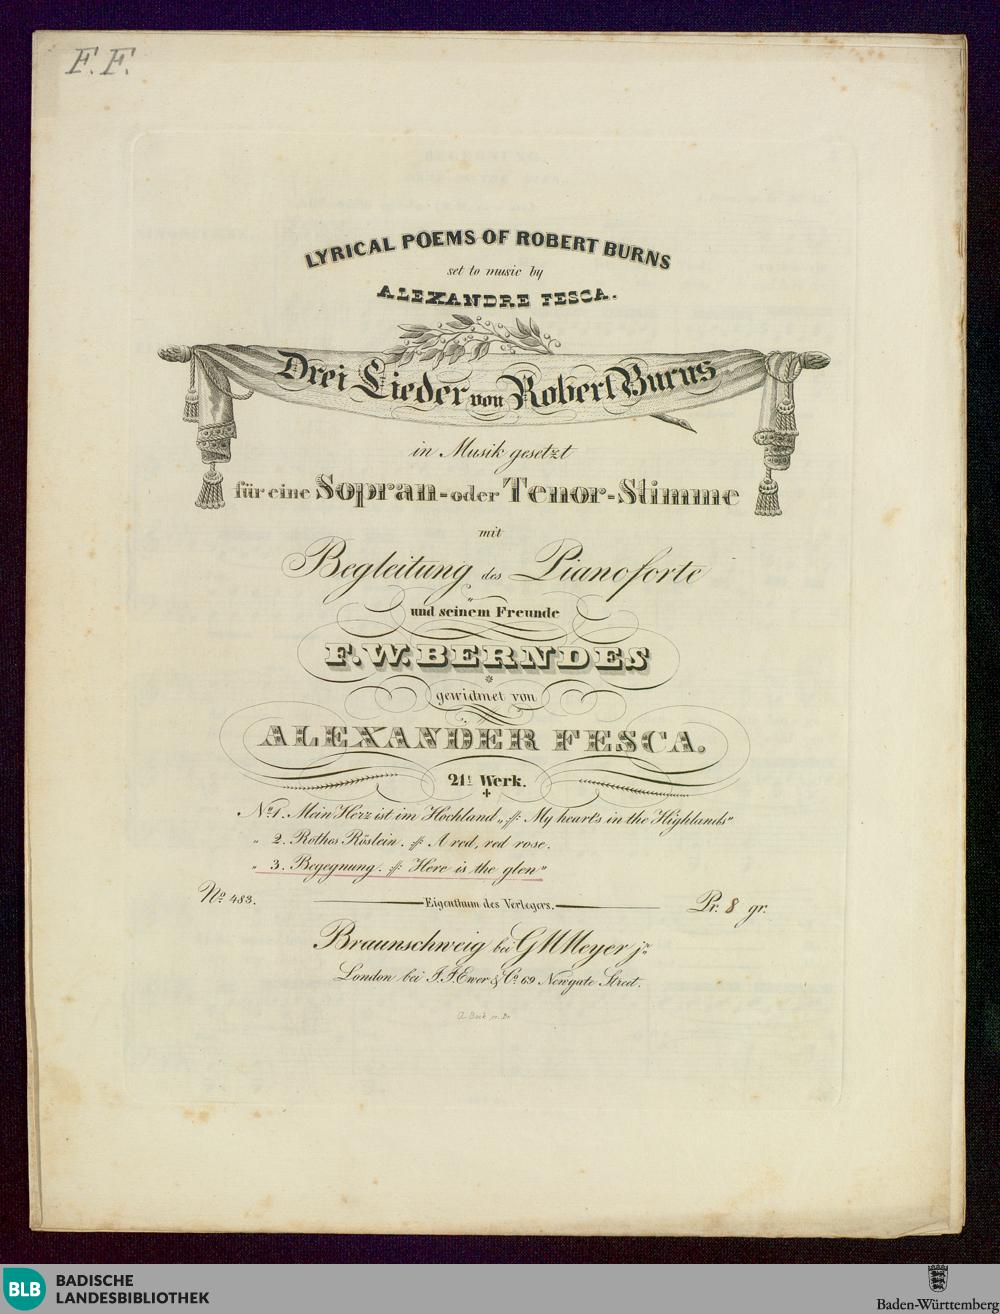 F. F.
LYRICAL POEMS OF ROBERT BURNS
set to music by
ALEXANDRE FESCA.
Drei Lieder von Robert Burns
in Musik gesetzt
für eine Sopran- oder Tenor-Stimme
mit
Begleitung des Pianoforte
und seinem Freunde
F. W. BERNDES
gewidmet von
ALEXANDER FESCA.
21t Werk.
No 1. Mein Herz ist im Hochland „ My heart's in the Highlands"
" 2. Rothes Röslein. A red, red rose.
" 3. Begegnung. Here is the glen"
No 483.
Eigenthum des Verlegers.
Pr. 8 gr.
Braunschweig bei G M Meyer jr.
London bei J. J. Ewer & Co 69 Newgate Street.
BLB BADISCHE
LANDESBIBLIOTHEK
Baden-Württemberg